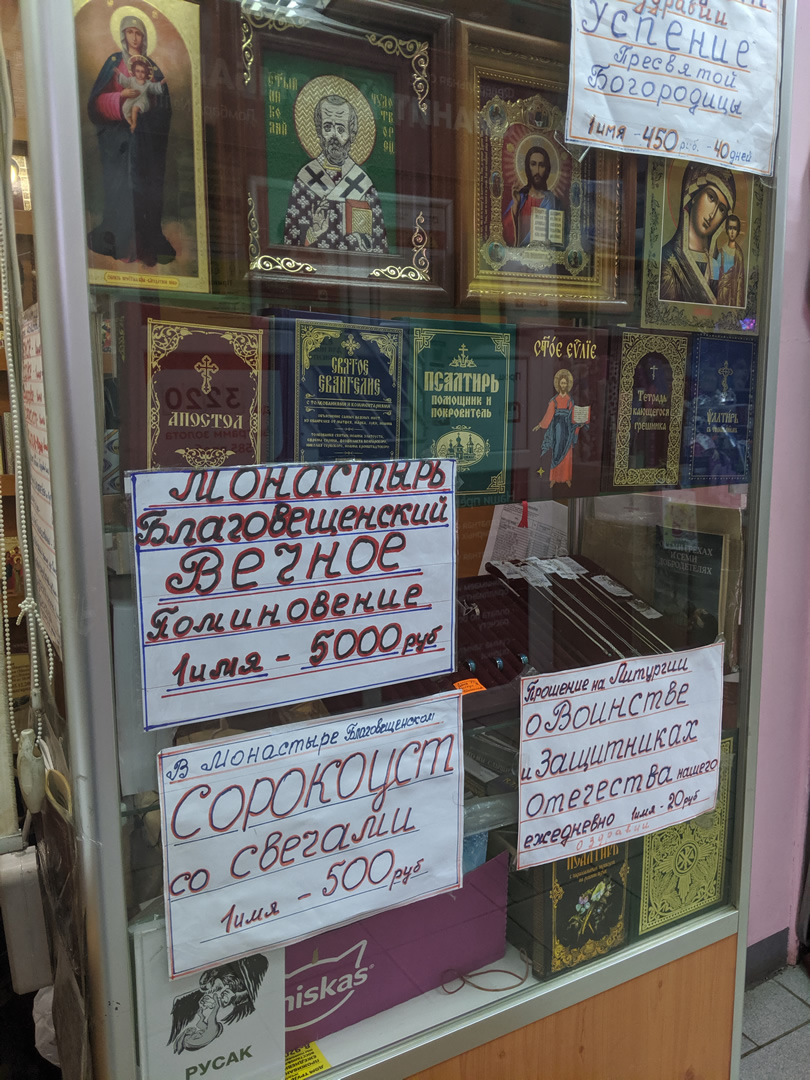 здравии
Успение
Пресвятой
Богородицы
1 имя - 450 руб. - 40 дней
АПОСТОЛ
СВЯТОЕ
ЕВАНГЕЛИЕ
ПСАЛТИРЬ
ПОМОЩНИК И
ПОКРОВИТЕЛЬ
Тетрадь
кающегося
грешника
ПСАЛТИРЬ
3220
Монастырь
Благовещенский
Вечное
Поминовение
1 имя - 5000 руб
В Монастыре Благовещенском
Сорокоуст
со свечами
1 имя - 500 руб
Прошение на Литургии
о Воинстве
и Защитниках
Отечества нашего
ежедневно 1 имя - 20 руб
о здравии
ПСАЛТИРЬ
hiskas®
РУСАК